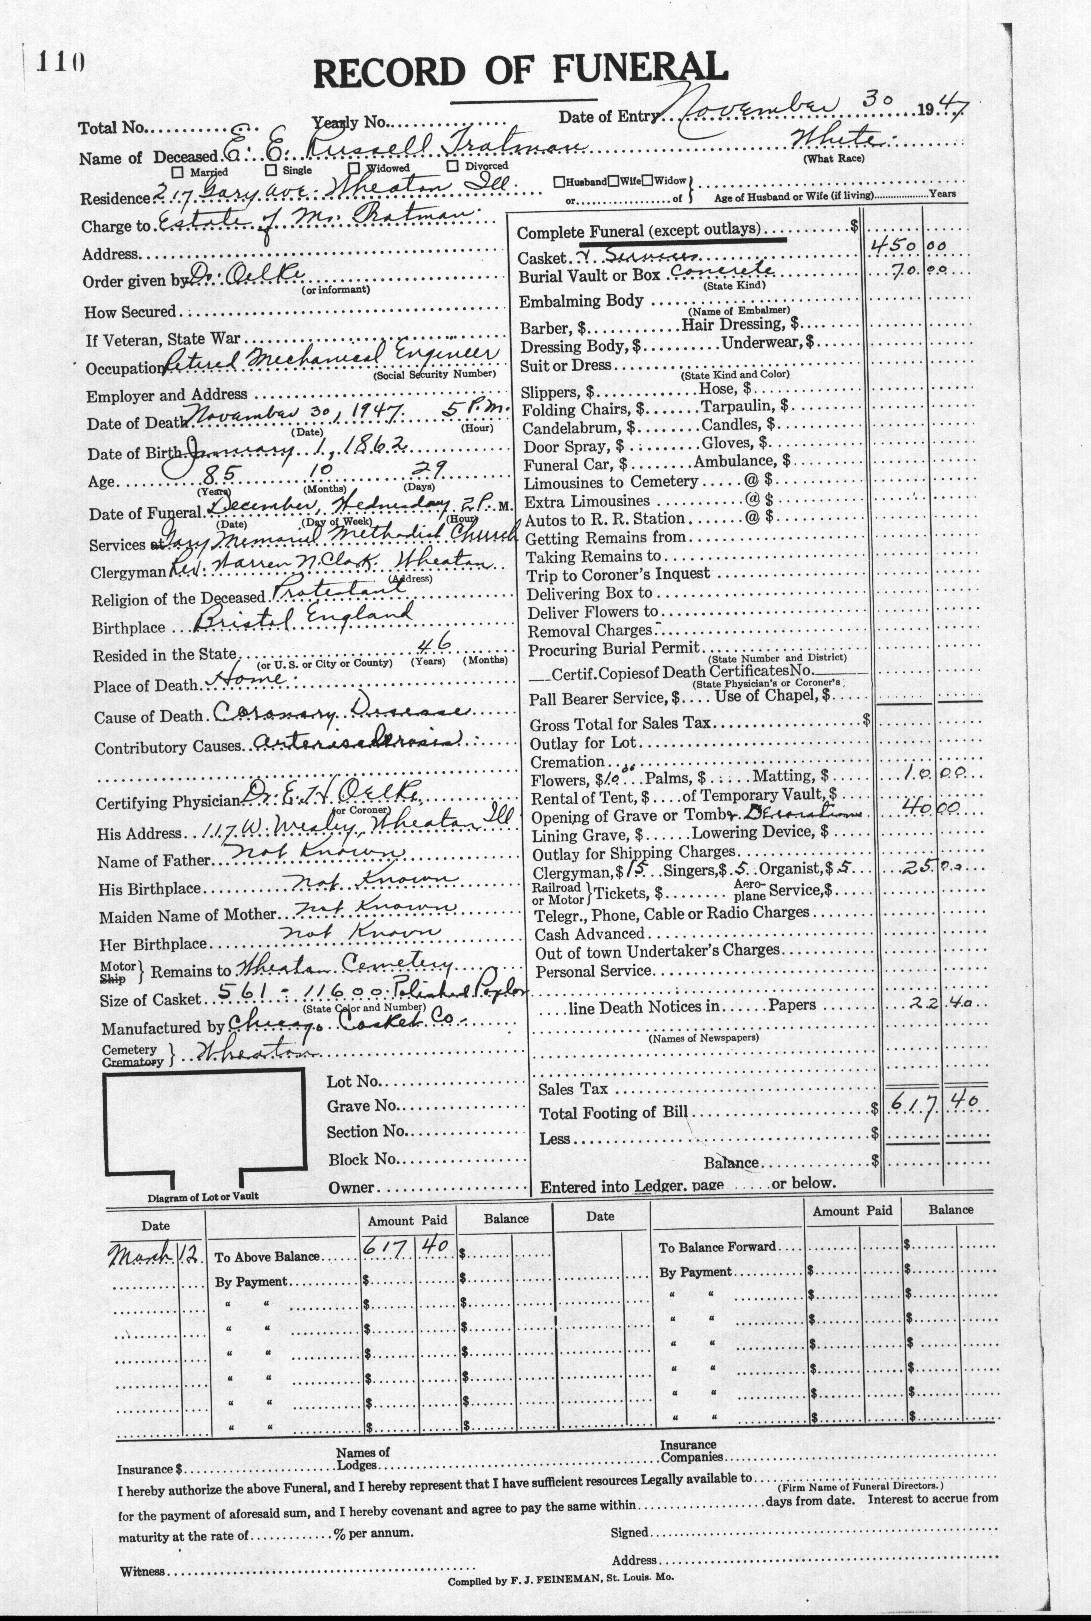 110
RECORD OF FUNERAL
Total No. Yearly No. Date of Entry November 30 1947
Name of Deceased E. E. Russell Tratman White
(What Race)
Married Single Widowed Divorced
Residence 217 Gary Ave. Wheaton Ill. Husband Wife Widow
or of Age of Husband or Wife (if living) Years
Charge to Estate of Mr. Tratman
Address
Order given by Dr. Oelke
(or informant)
How Secured
If Veteran, State War
Occupation Retired Mechanical Engineer
(Social Security Number)
Employer and Address
Date of Death November 30, 1947. 5 P.M.
(Date) (Hour)
Date of Birth January 1, 1862
Age 85 10 29
(Years) (Months) (Days)
Date of Funeral December, Wednesday 2 P. M.
(Date) (Day of Week) (Hour)
Services at Gary Memorial Methodist Church
Clergyman Rev. Warren N. Clark Wheaton
(Address)
Religion of the Deceased Protestant
Birthplace Bristol England
Resided in the State 46
(or U. S. or City or County) (Years) (Months)
Place of Death Home.
Cause of Death Coronary Disease
Contributory Causes Arteriosclerosis
Certifying Physician Dr. E. H. Oelke
(or Coroner)
His Address 117 W. Wesley, Wheaton Ill
Name of Father Not Known
His Birthplace Not Known
Maiden Name of Mother Not Known
Her Birthplace Not Known
Motor
Ship } Remains to Wheaton Cemetery
Size of Casket 561 - 11600 Polished Poplar
(State Color and Number)
Manufactured by Chicago Casket Co.
Cemetery
Crematory } Wheaton
Lot No.
Grave No.
Section No.
Block No.
Owner
Diagram of Lot or Vault
Complete Funeral (except outlays) $
Casket & Services 450 00
Burial Vault or Box Concrete 70 00
(State Kind)
Embalming Body
(Name of Embalmer)
Barber, $ Hair Dressing, $
Dressing Body, $ Underwear, $
Suit or Dress
(State Kind and Color)
Slippers, $ Hose, $
Folding Chairs, $ Tarpaulin, $
Candelabrum, $ Candles, $
Door Spray, $ Gloves, $
Funeral Car, $ Ambulance, $
Limousines to Cemetery @ $
Extra Limousines @ $
Autos to R. R. Station @ $
Getting Remains from
Taking Remains to
Trip to Coroner's Inquest
Delivering Box to
Deliver Flowers to
Removal Charges
Procuring Burial Permit
(State Number and District)
Certif. Copies of Death Certificates No.
(State Physician's or Coroner's
Pall Bearer Service, $ Use of Chapel, $
Gross Total for Sales Tax $
Outlay for Lot
Cremation
Flowers, $10.00 Palms, $ Matting, $ 10 00
Rental of Tent, $ of Temporary Vault, $
Opening of Grave or Tomb & Decorations 40 00
Lining Grave, $ Lowering Device, $
Outlay for Shipping Charges
Clergyman, $15 Singers, $ 5 Organist, $ 5 25 00
Railroad
or Motor } Tickets, $ Aero-
plane Service, $
Telegr., Phone, Cable or Radio Charges
Cash Advanced
Out of town Undertaker's Charges
Personal Service
line Death Notices in Papers 22 40
(Names of Newspapers)
Sales Tax
Total Footing of Bill $ 617 40
Less $
Balance $
Entered into Ledger, page or below.
Date Amount Paid Balance Date Amount Paid Balance
March 12 To Above Balance 617 40 $ To Balance Forward $
By Payment $ $ By Payment $ $
" " $ $ " " $ $
" " $ $ " " $ $
" " $ $ " " $ $
" " $ $ " " $ $
" " $ $ " " $ $
" " $ $ " " $ $
Insurance $ Names of Lodges Insurance Companies
I hereby authorize the above Funeral, and I hereby represent that I have sufficient resources Legally available to
(Firm Name of Funeral Directors.)
for the payment of aforesaid sum, and I hereby covenant and agree to pay the same within days from date. Interest to accrue from
maturity at the rate of % per annum. Signed
Witness Address
Compiled by F. J. FEINEMAN, St. Louis. Mo.